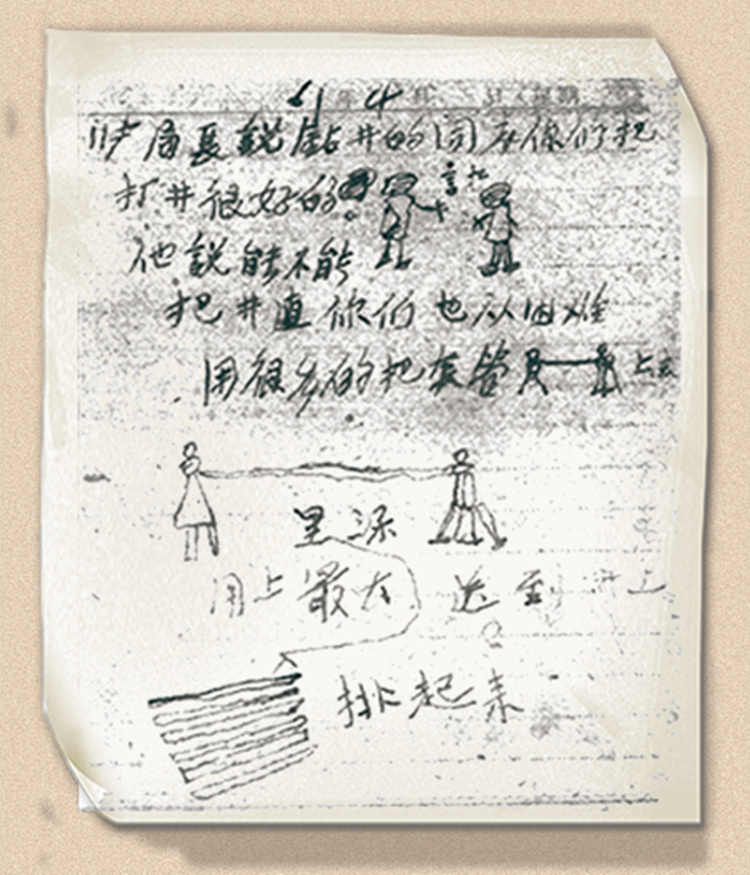 61 年 4 月 日
局長説鉆井的同志你们把
打井很好的
他説能不能
把井直你们也从困难
用很多的把套管 上去
用上最大 送到井上
排起来